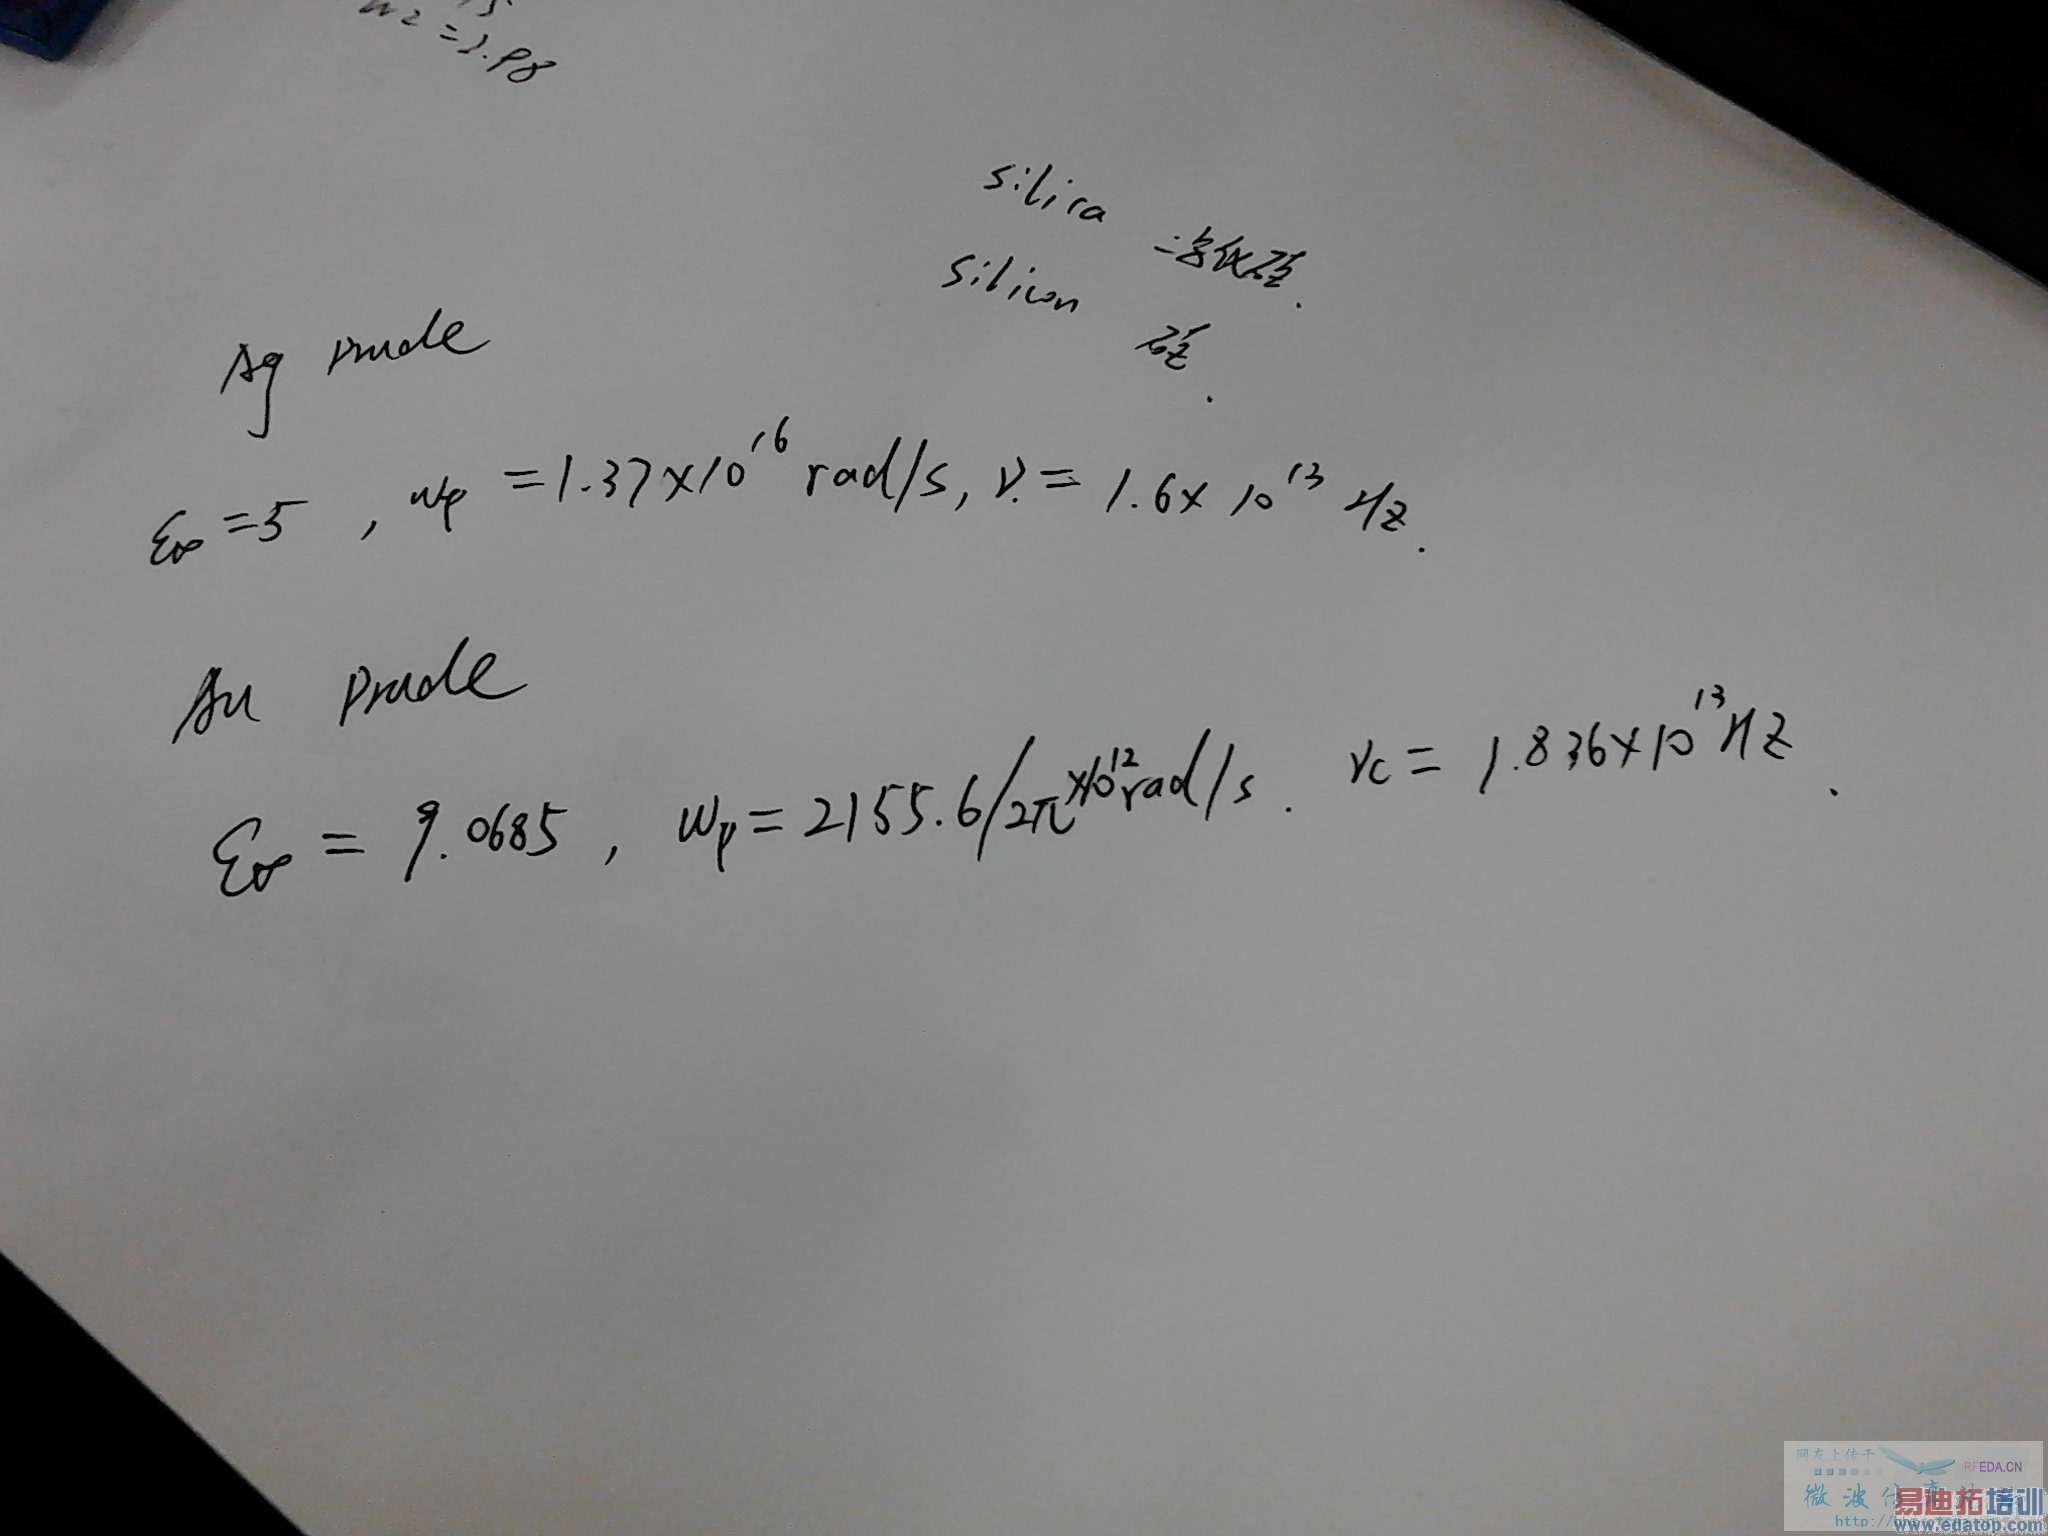 =2.98
silica 二氧化硅.
silicon 硅.
Ag Drude
ε∞=5, wp=1.37×10¹⁶ rad/s, ν=1.6×10¹³ Hz.
Au Drude
ε∞=9.0685, wp=2155.6/2π×10¹²rad/s. νc=1.836×10¹³HZ.
网友上传于
RFEDA.CN
易迪拓培训
www.edatop.com